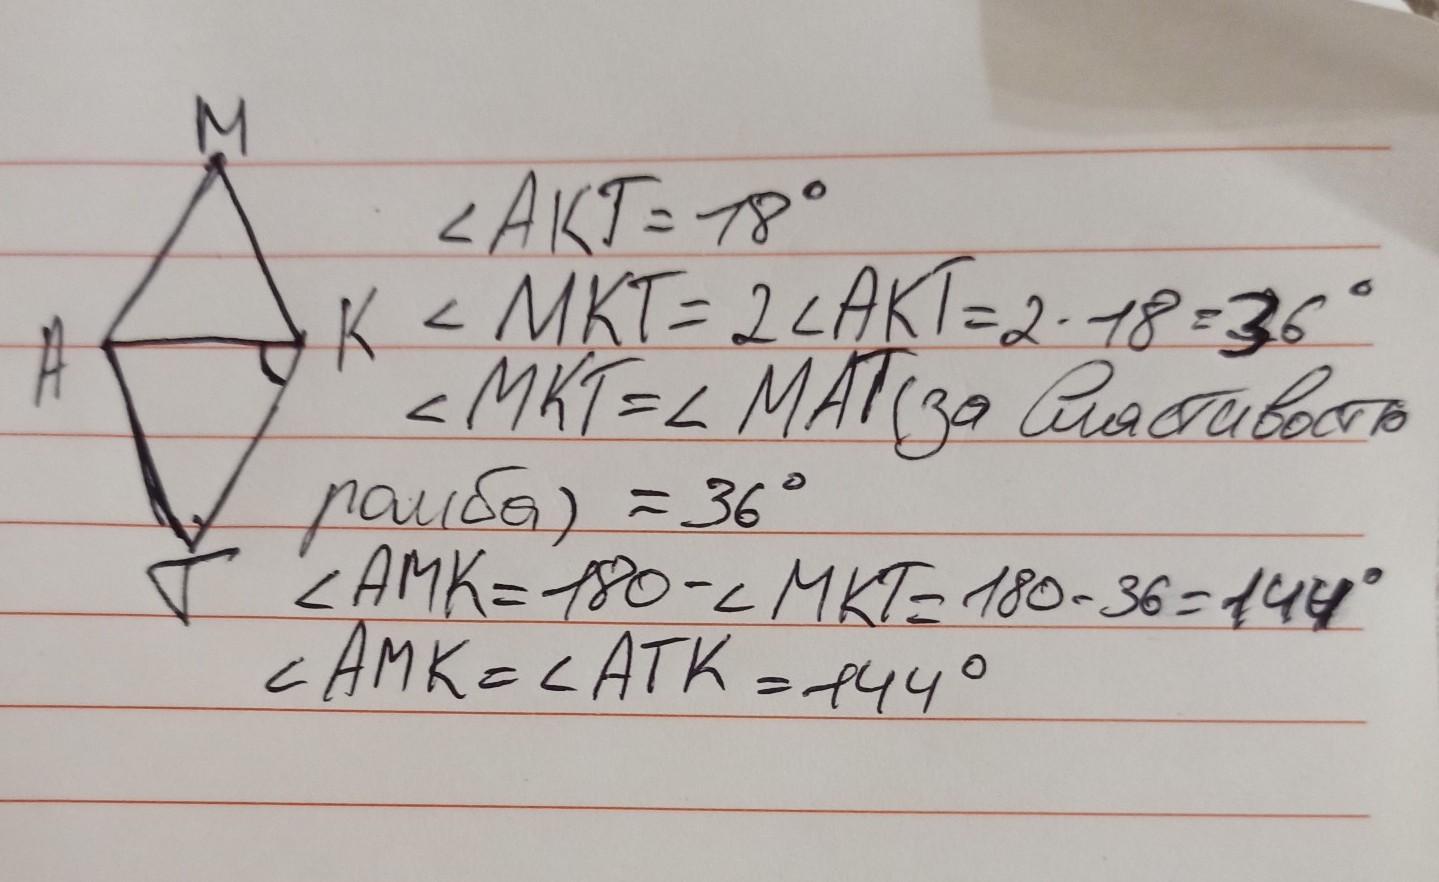 M
∠AKT = 18°
A
K
∠MKT = 2∠AKT = 2·18 = 36°
∠MKT = ∠MAT (за властивостю
ромба) = 36°
T
∠AMK = 180 - ∠MKT = 180 - 36 = 144°
∠AMK = ∠ATK = 144°